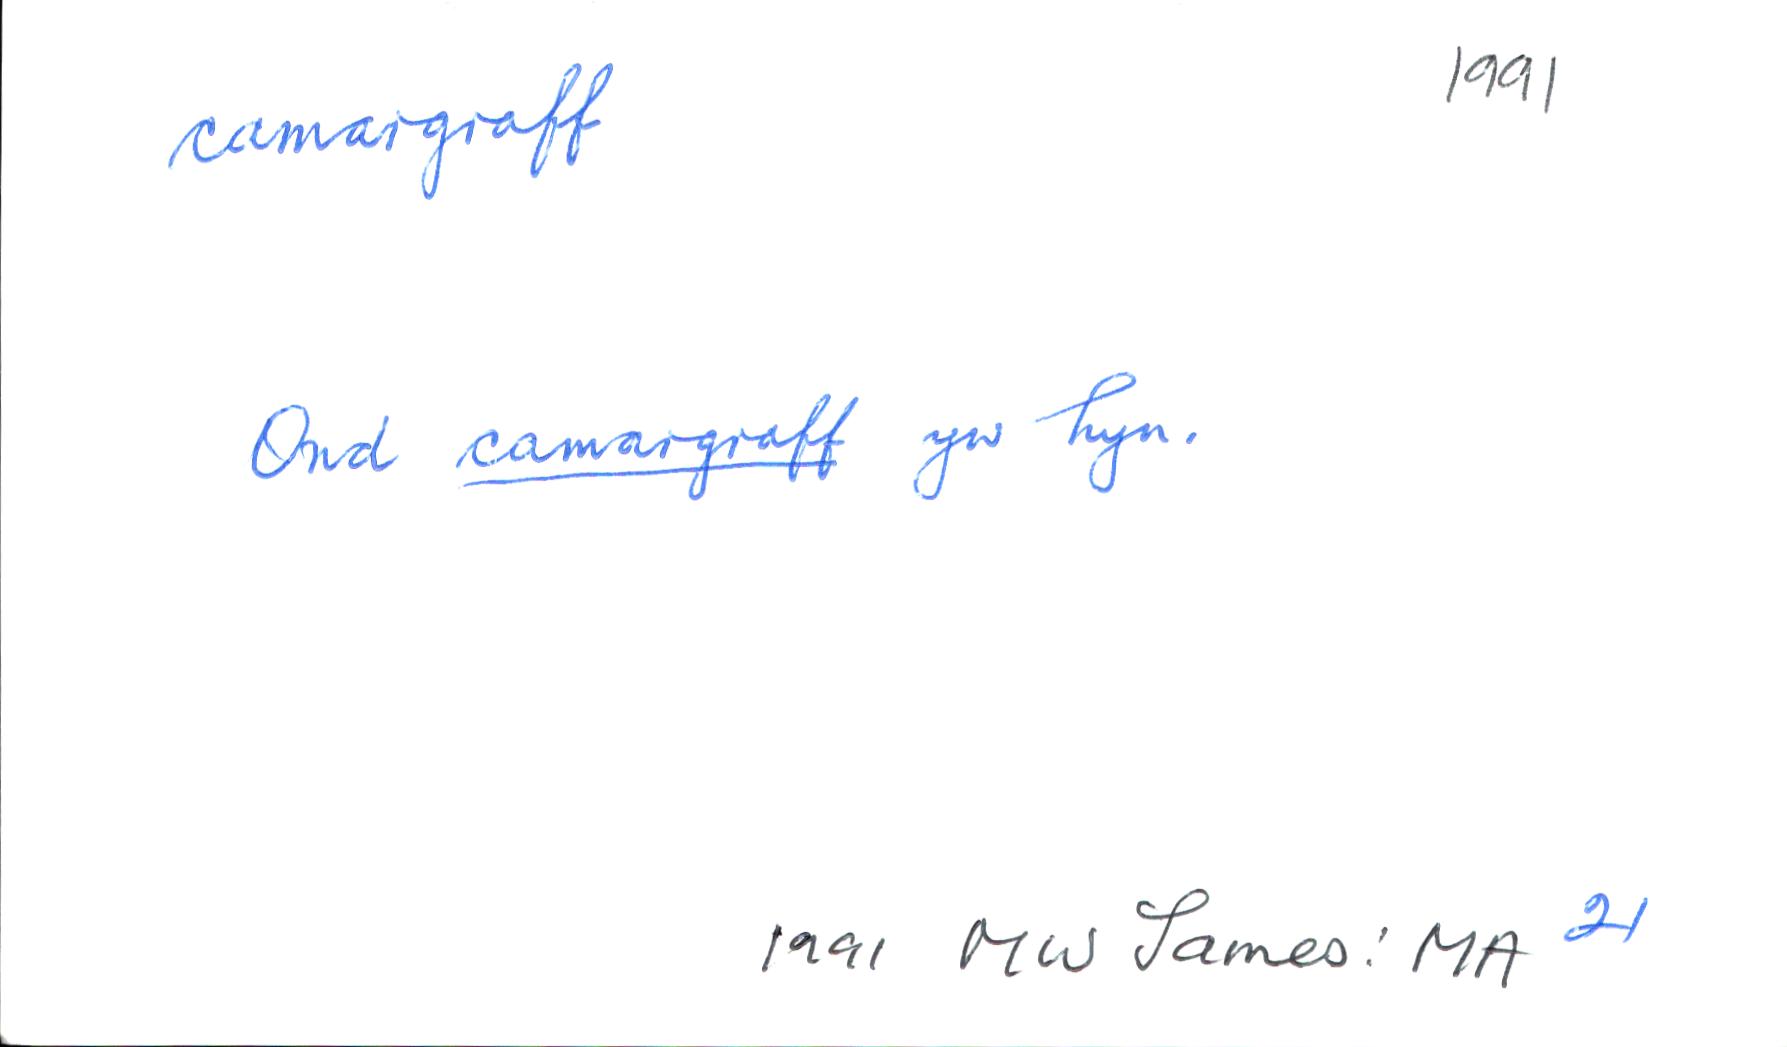 camargraff 1991
Ond camargraff yw hyn.
1991 MW James: MA 21